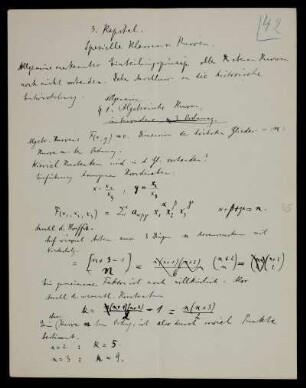 42
3. Kapitel.
Spezielle Klassen v. Kurven.
Allgemein anerkanntes Einteilungsprinzip aller Kurven
noch nicht vorhanden. Daher Anschluss an die historische
Entwicklung.
Allgemeine
§ 1. Algebraische Kurven,
insbesondere 3. Ordnung.
Algebr. Kurven F(x, y) = 0. Dimension der höchsten Glieder = n:
Kurve n-ter Ordnung.
Wieviel Konstanten sind in d. Gl. vorhanden?
Einführung homogener Koordinaten.
x = x₁/x₃, y = x₂/x₃
F(x₁, x₂, x₃) = Σ a_αβγ x₁^α x₂^β x₃^γ α+β+γ = n.
Anzahl d. Koeffiz.
Auf wieviel Arten aus 3 Dingen n
= [n+3-1 / n] = = (n+2 / 2) =
Ein gemeinsamer Faktor ist noch willkürlich. Also
Anzahl d. wesentl. Konstanten
k = - 1 = n(n+3)/2
Eine Kurve n-ter Ordng. ist also durch soviel Punkte
bestimmt.
n = 2 : k = 5.
n = 3 : k = 9.